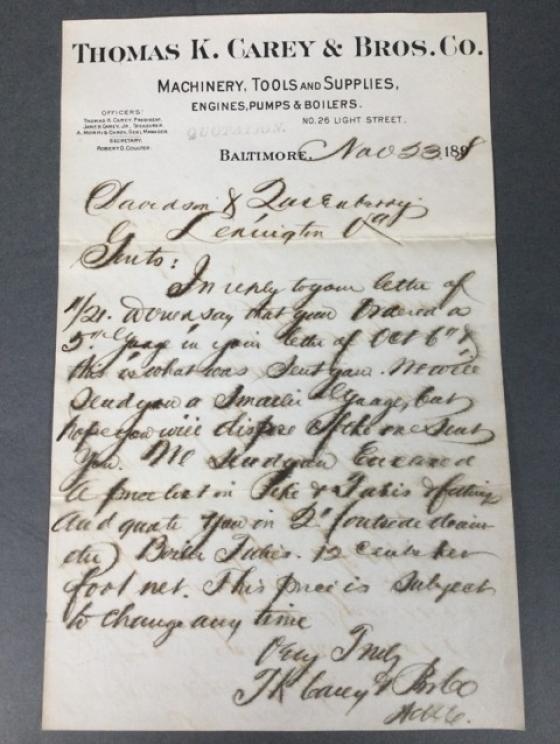 THOMAS K. CAREY & BROS. CO.
MACHINERY, TOOLS AND SUPPLIES,
ENGINES, PUMPS & BOILERS.
OFFICERS:
THOMAS K. CAREY, PRESIDENT,
JAMES CAREY, JR., TREASURER,
A. MORRIS CAREY, GENL MANAGER
SECRETARY,
ROBERT D. COULTER.
NO. 26 LIGHT STREET.
QUOTATION.
BALTIMORE, Nov 23 189
Davidson & Quisenberry
Lexington Va
Gents:
In reply to your letter of
11/21. would say that you ordered a
5" gage in your letter of Oct 6" &
this is what was sent you. We will
send you a smaller gage, but
hope you will dispose of the one sent
you. We send you Enclosed
a price list on Pipe & Tubes & fittings
and quote you on 2" (outside diam
eter) Boiler Tubes. 12 cents per
foot net. This price is subject
to change any time
Very Truly
TK Carey & Bro Co